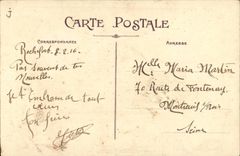 CARTE POSTALE
CORRESPONDANCE
Rochefort, 8.2.16
Pas souvent de tes
nouvelles.
Je t'embrasse de tout
cœur
Ton frère
ADRESSE
Melle Maria Martin
70 Route de Fontenay
Montreuil s/Bois
Seine